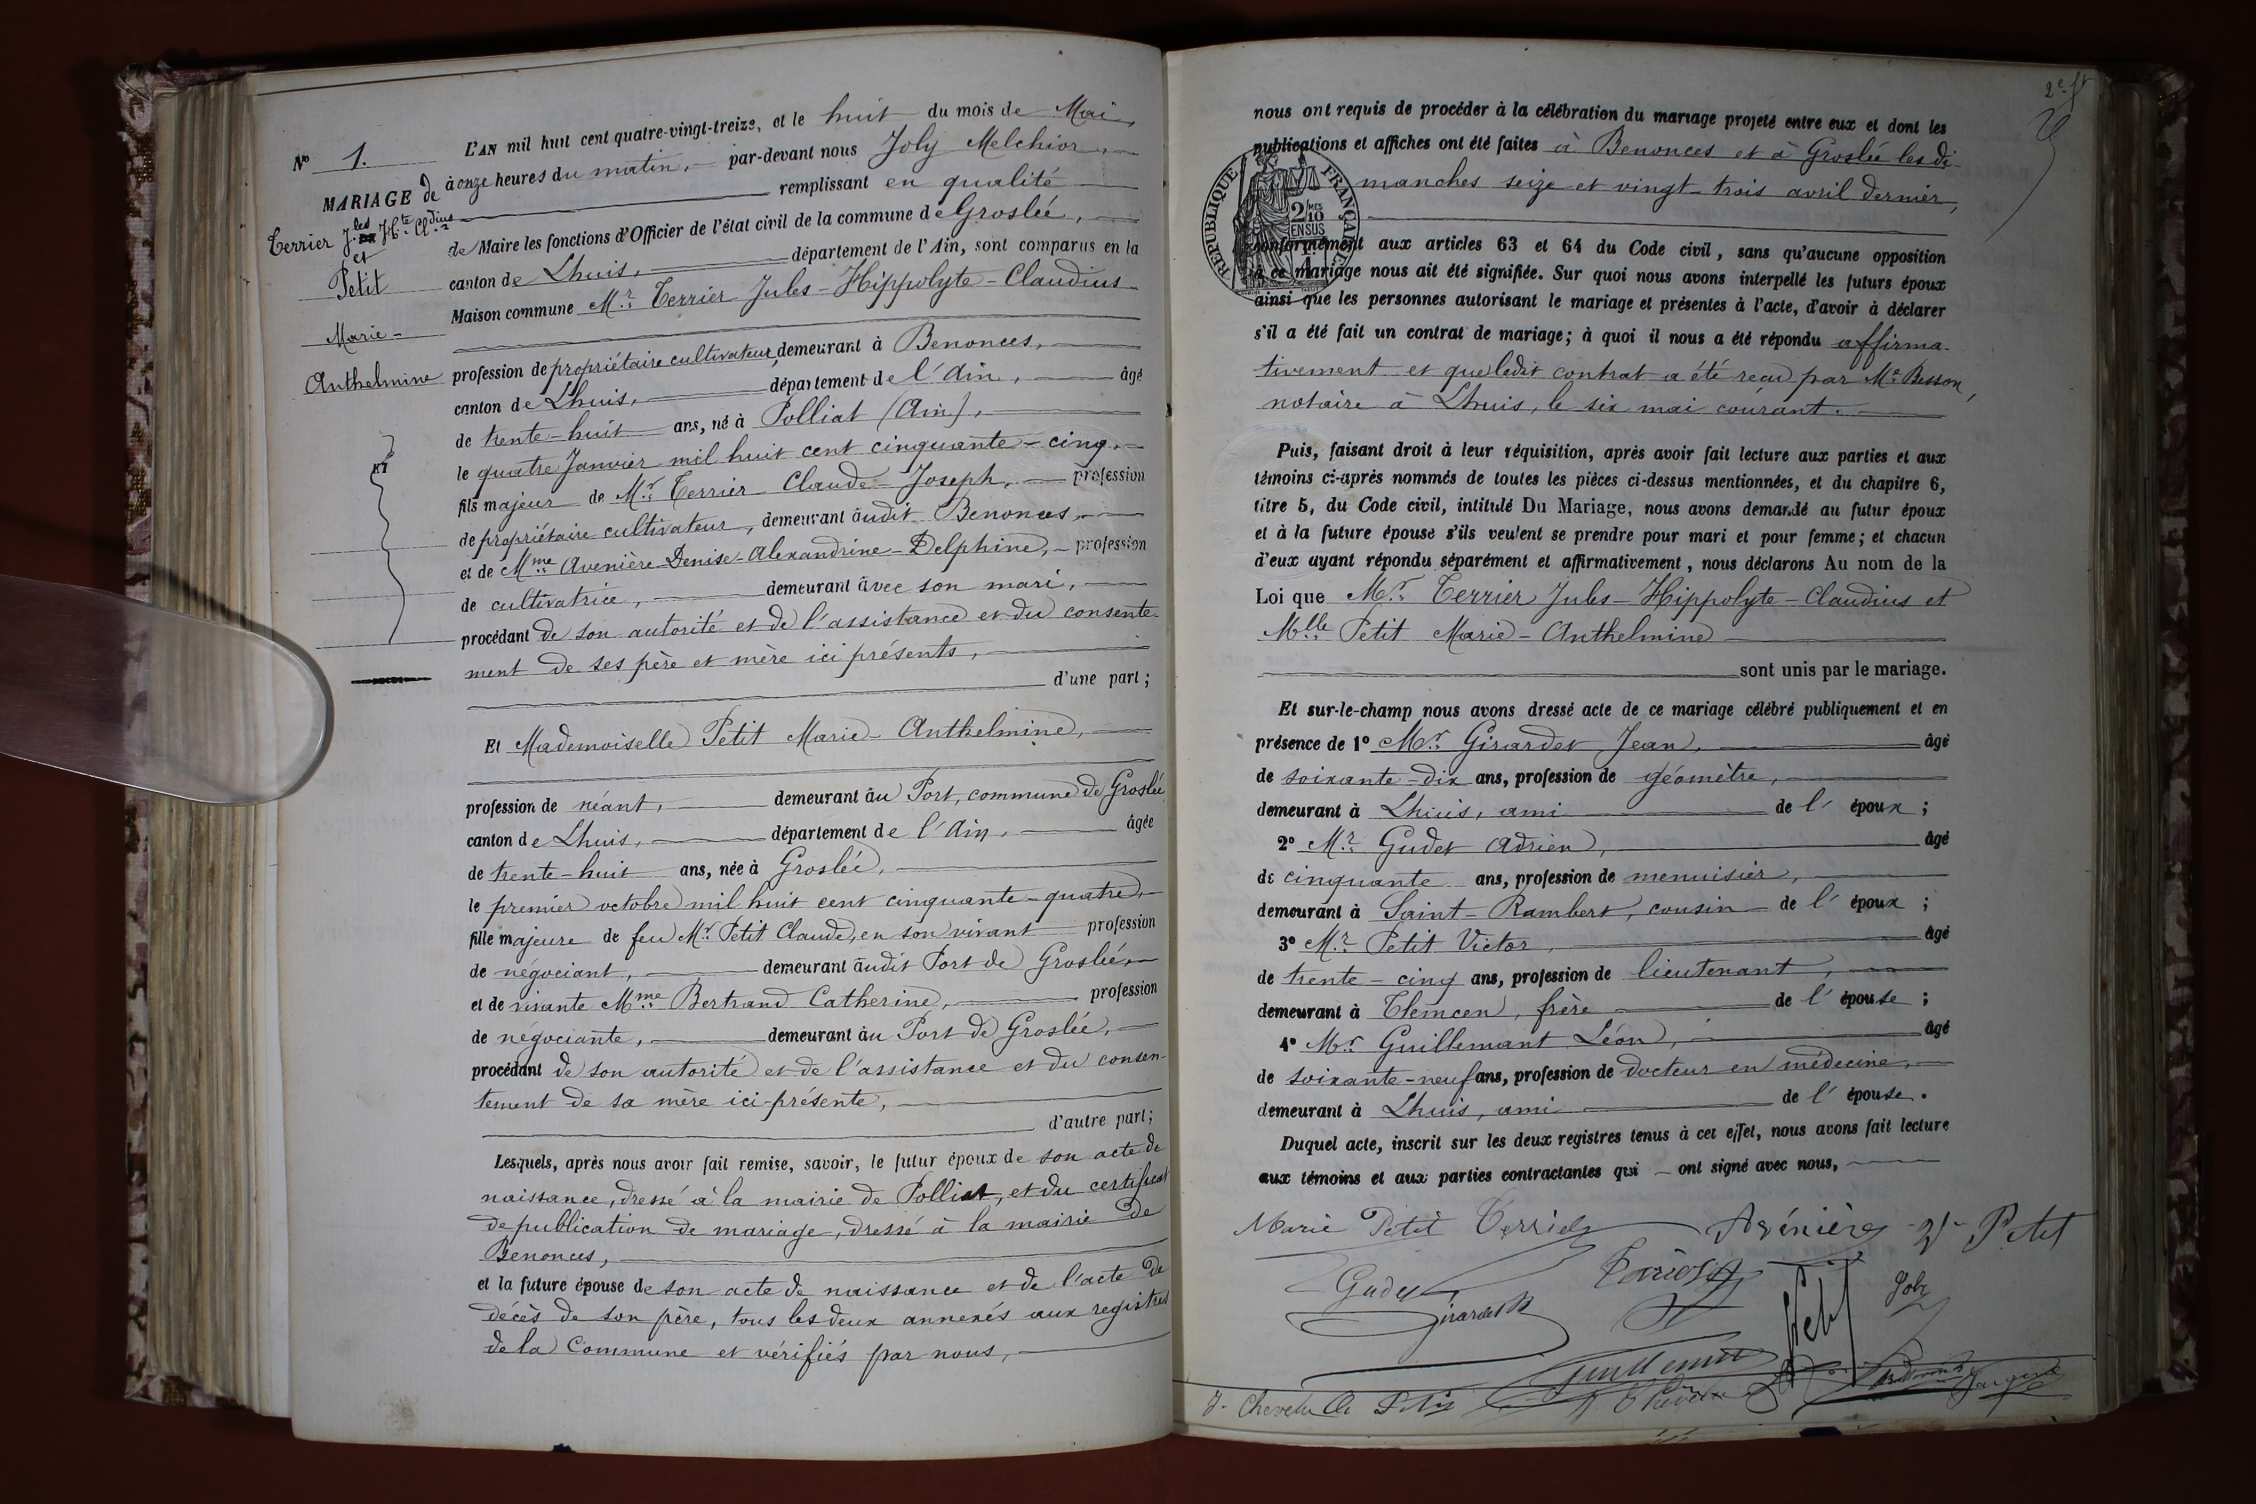 Nº 1.
MARIAGE de
Terrier J.les Hte Cldius
et
Petit
Marie-
Anthelmine
L'AN mil huit cent quatre-vingt-treize, et le huit du mois de Mai,
à onze heures du matin, par-devant nous Joly Melchior,
remplissant en qualité
de Maire les fonctions d'Officier de l'état civil de la commune de Groslée,
canton de Lhuis, département de l'Ain, sont comparus en la
Maison commune Mr. Terrier Jules-Hippolyte-Claudius
profession de propriétaire cultivateur, demeurant à Benonces,
canton de Lhuis, département de l'Ain, âgé
de trente-huit ans, né à Polliat (Ain),
le quatre Janvier mil huit cent cinquante-cinq,
fils majeur de Mr. Terrier Claude-Joseph, profession
de propriétaire cultivateur, demeurant audit Benonces,
et de Mme Avenière Denise-Alexandrine-Delphine, profession
de cultivatrice, demeurant avec son mari,
procédant de son autorité et de l'assistance et du consente-
ment de ses père et mère ici présents,
d'une part;
Et Mademoiselle Petit Marie-Anthelmine,
profession de néant, demeurant au Port, commune de Groslée
canton de Lhuis, département de l'Ain, âgée
de trente-huit ans, née à Groslée,
le premier octobre mil huit cent cinquante-quatre,
fille majeure de feu Mr. Petit Claude, en son vivant profession
de négociant, demeurant audit Port de Groslée,
et de vivante Mme Bertrand Catherine, profession
de négociante, demeurant au Port de Groslée,
procédant de son autorité et de l'assistance et du consen-
tement de sa mère ici présente,
d'autre part;
Lesquels, après nous avoir fait remise, savoir, le futur époux de son acte de
naissance, dressé à la mairie de Polliat, et du certificat
de publication de mariage, dressé à la mairie de
Benonces,
et la future épouse de son acte de naissance et de l'acte de
décès de son père, tous les deux annexés aux registres
de la Commune et vérifiés par nous,
2e ft
nous ont requis de procéder à la célébration du mariage projeté entre eux et dont les
publications et affiches ont été faites à Benonces et à Groslée les di-
manches seize et vingt-trois avril dernier,
RÉPUBLIQUE FRANÇAISE
2/10 MES
EN SUS
conformément aux articles 63 et 64 du Code civil, sans qu'aucune opposition
à ce mariage nous ait été signifiée. Sur quoi nous avons interpellé les futurs époux
ainsi que les personnes autorisant le mariage et présentes à l'acte, d'avoir à déclarer
s'il a été fait un contrat de mariage; à quoi il nous a été répondu affirma-
tivement et que ledit contrat a été reçu par Me Besson,
notaire à Lhuis, le six mai courant.
Puis, faisant droit à leur réquisition, après avoir fait lecture aux parties et aux
témoins ci-après nommés de toutes les pièces ci-dessus mentionnées, et du chapitre 6,
titre 5, du Code civil, intitulé Du Mariage, nous avons demandé au futur époux
et à la future épouse s'ils veulent se prendre pour mari et pour femme; et chacun
d'eux ayant répondu séparément et affirmativement, nous déclarons Au nom de la
Loi que Mr. Terrier Jules-Hippolyte-Claudius et
Mlle Petit Marie-Anthelmine
sont unis par le mariage.
Et sur-le-champ nous avons dressé acte de ce mariage célébré publiquement et en
présence de 1º Mr. Girardet Jean, âgé
de soixante-dix ans, profession de géomètre,
demeurant à Lhuis, ami de l'époux;
2º Mr. Gudet Adrien, âgé
de cinquante ans, profession de menuisier,
demeurant à Saint-Rambert, cousin de l'époux;
3º Mr. Petit Victor, âgé
de trente-cinq ans, profession de lieutenant,
demeurant à Tlemcen, frère de l'épouse;
4º Mr. Guillemant Léon, âgé
de soixante-neuf ans, profession de docteur en médecine,
demeurant à Lhuis, ami de l'épouse.
Duquel acte, inscrit sur les deux registres tenus à cet effet, nous avons fait lecture
aux témoins et aux parties contractantes qui ont signé avec nous,
Marie Petit Terrier Avénière Vr Petit
Gudet
Girardet Petit Joly
Guillemant
J. Chevelu